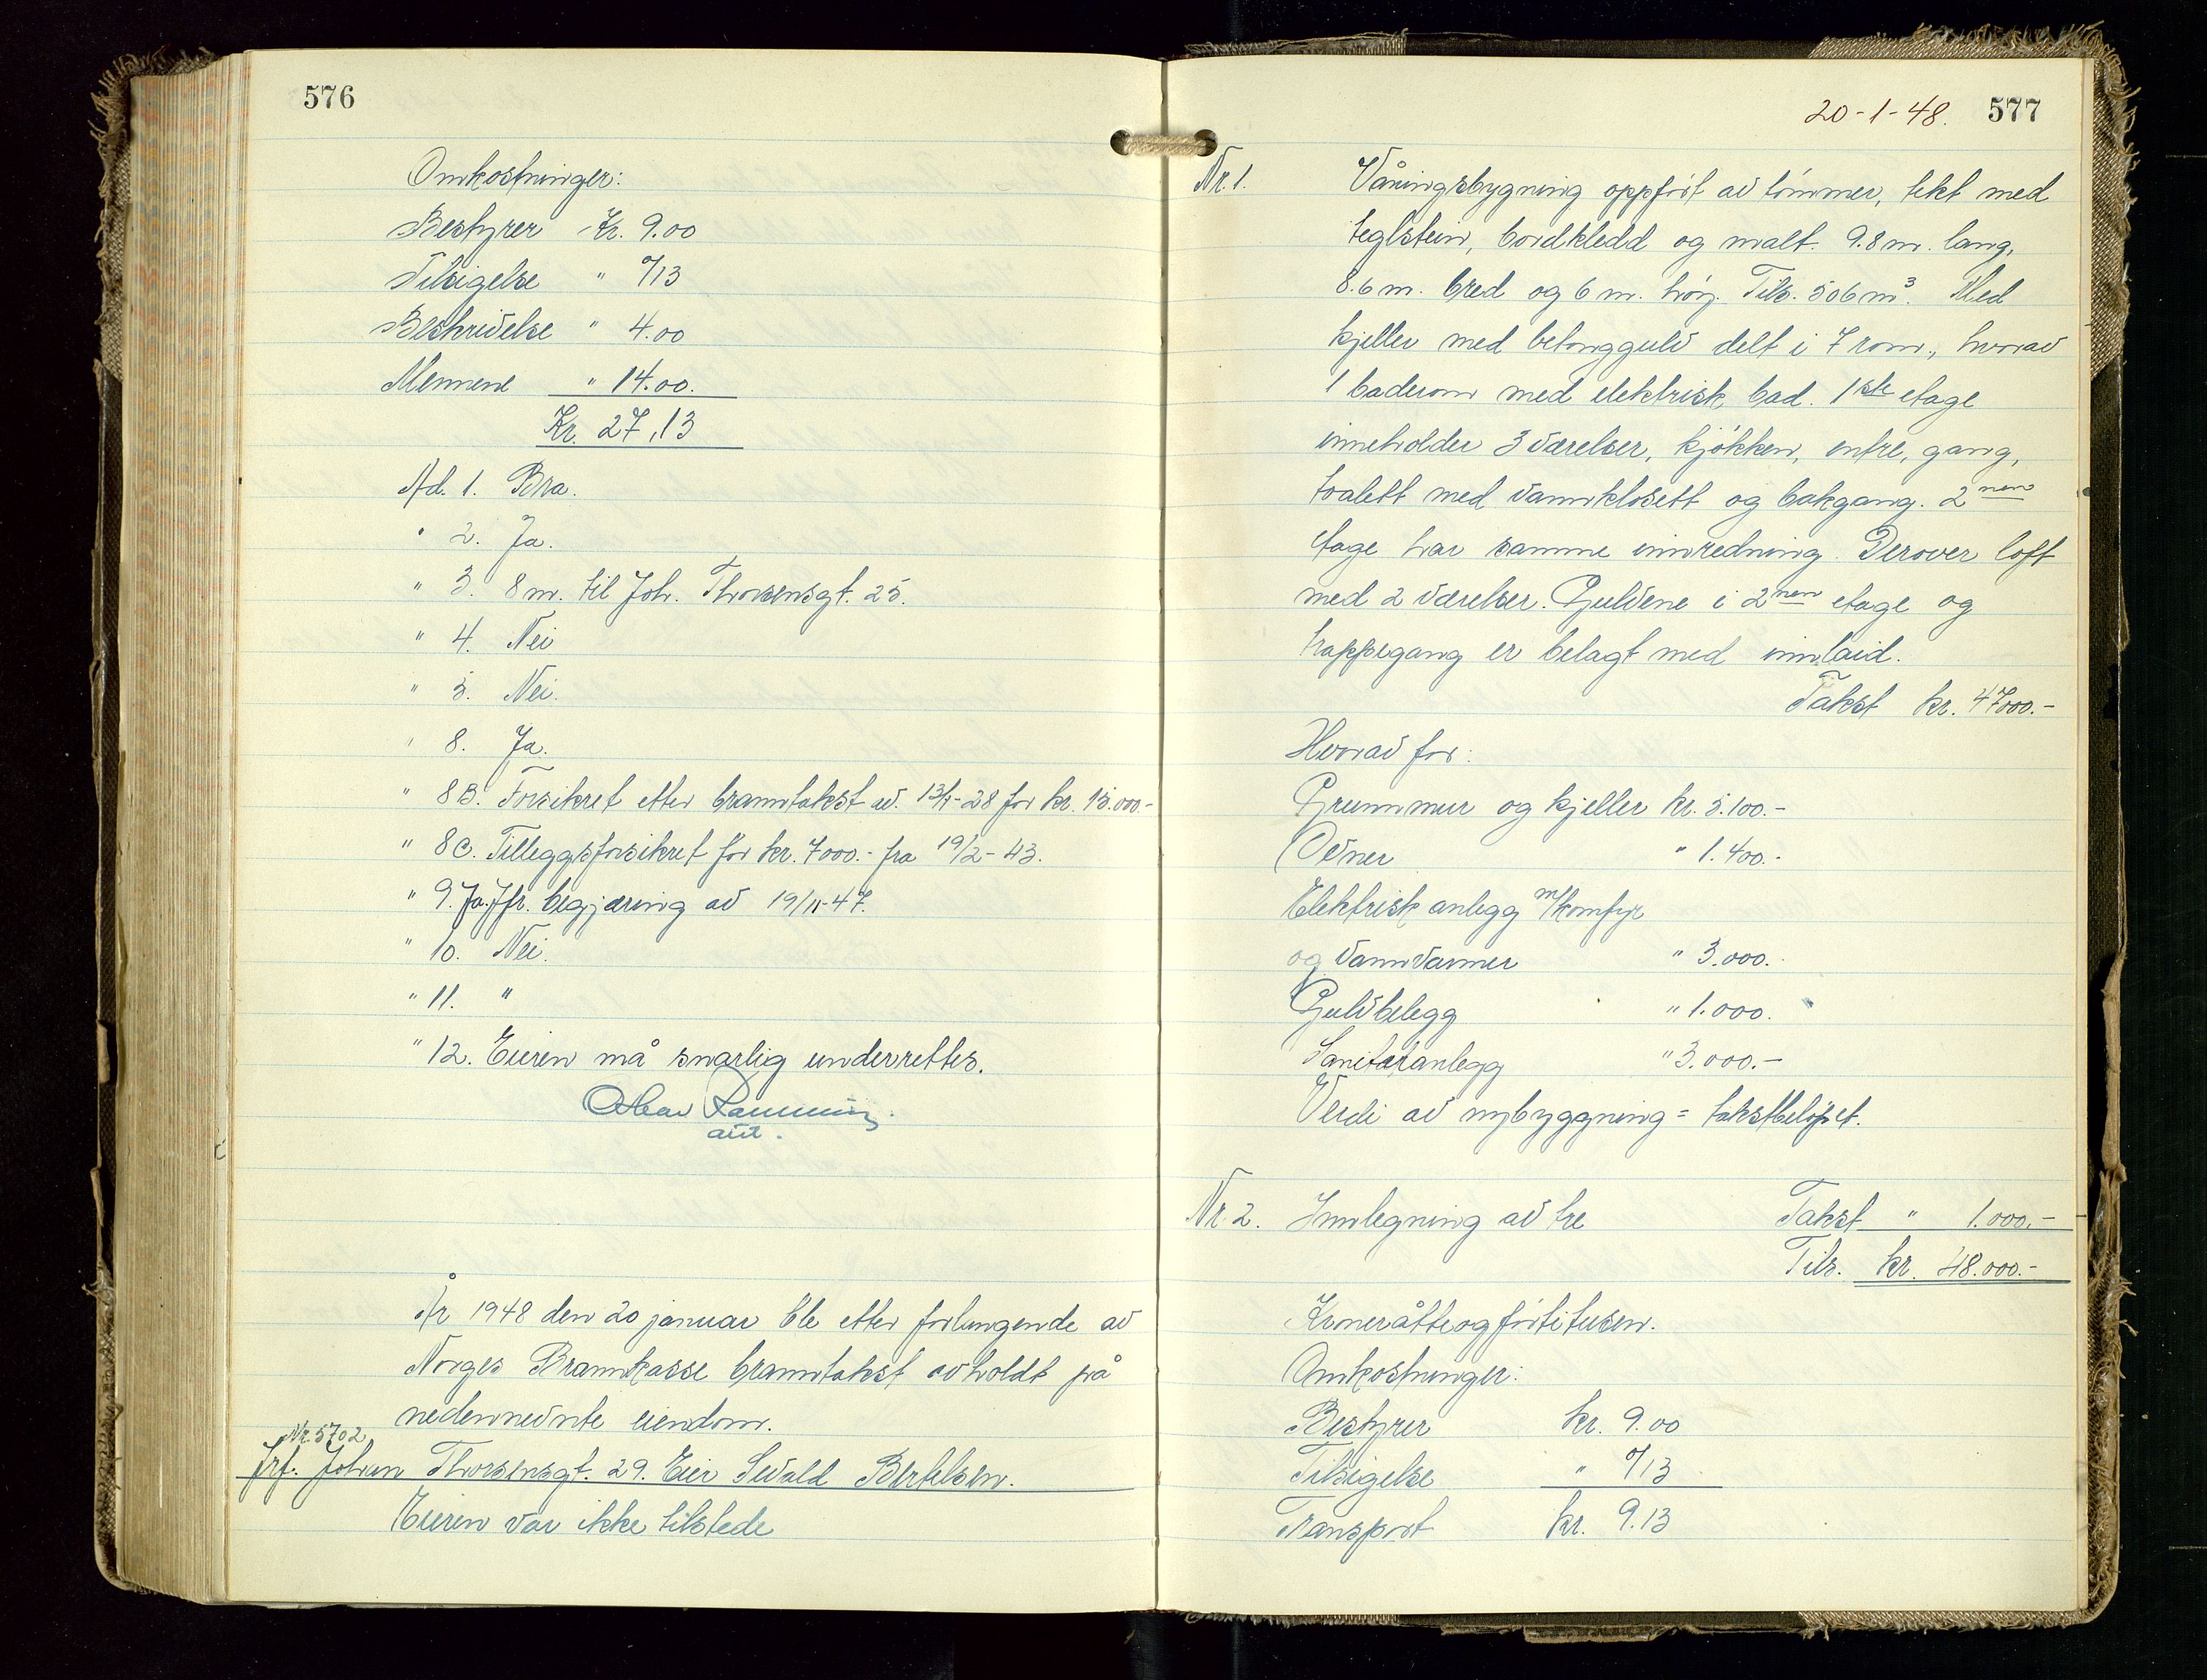 576
Omkostninger:
Bestyrer Kr. 9.00
Tilsigelse " 0/13
Beskrivelse " 4.00
Mennene " 14.00.
Kr. 27,13
Ad. 1. Bra.
" 2. Ja.
" 3. 8 m. til Joh. Thorsensgt. 25.
" 4. Nei
" 5. Nei.
" 8. Ja.
" 8B. Forsikret etter branntakst av. 13/1-28 for kr. 15.000.-
" 8C. Tilleggsforsikret for kr. 7000.- fra 19/2-43.
" 9. Ja. Jfr. begjæring av 19/11-47.
" 10. Nei.
" 11. "
" 12. Eieren må snarlig underrettes.
aut.
År 1948 den 20 januar ble etter forlangende av
Norges Brannkasse branntakst avholdt på
nedennevnte eiendom.
Nr. 5702
Jrf. Johan Thorsensgt. 29. Eier Sevald Bertelsen.
Eieren var ikke tilstede
20-1-48. 577
Nr. 1. Våningsbygning oppført av tømmer, tekt med
teglstein, bordkledd og malt. 9.8 m. lang,
8.6 m. bred og 6 m. høy. Tils. 506 m³. Med
kjeller med betonggulv delt i 7 rom, hvorav
1 baderom med elektrisk bad. 1ste etage
inneholder 3 værelser, kjøkken, entre, gang,
toalett med vannklosett og bakgang. 2nen
etage har samme innredning. Derover loft
med 2 værelser. Gulvene i 2nen etage og
trappegang er belagt med innlaid.
Takst kr. 47000.-
Hvorav for:
Grunnmur og kjeller kr. 5.100.-
Ovner " 1.400.-
Elektrisk anlegg m/komfyr
og vannvarmer " 3.000.-
Gulvbelegg " 1.000.
Sanitæranlegg " 3.000.-
Verdi av nybyggning = takstbeløpet.
Nr. 2. Innlegning av tre Takst " 1.000.-
Tils. kr. 48.000.-
Kroneråtteogførtitusen.
Omkostninger:
Bestyrer kr. 9.00
Tilsigelse " 0/13
Transport kr. 9.13